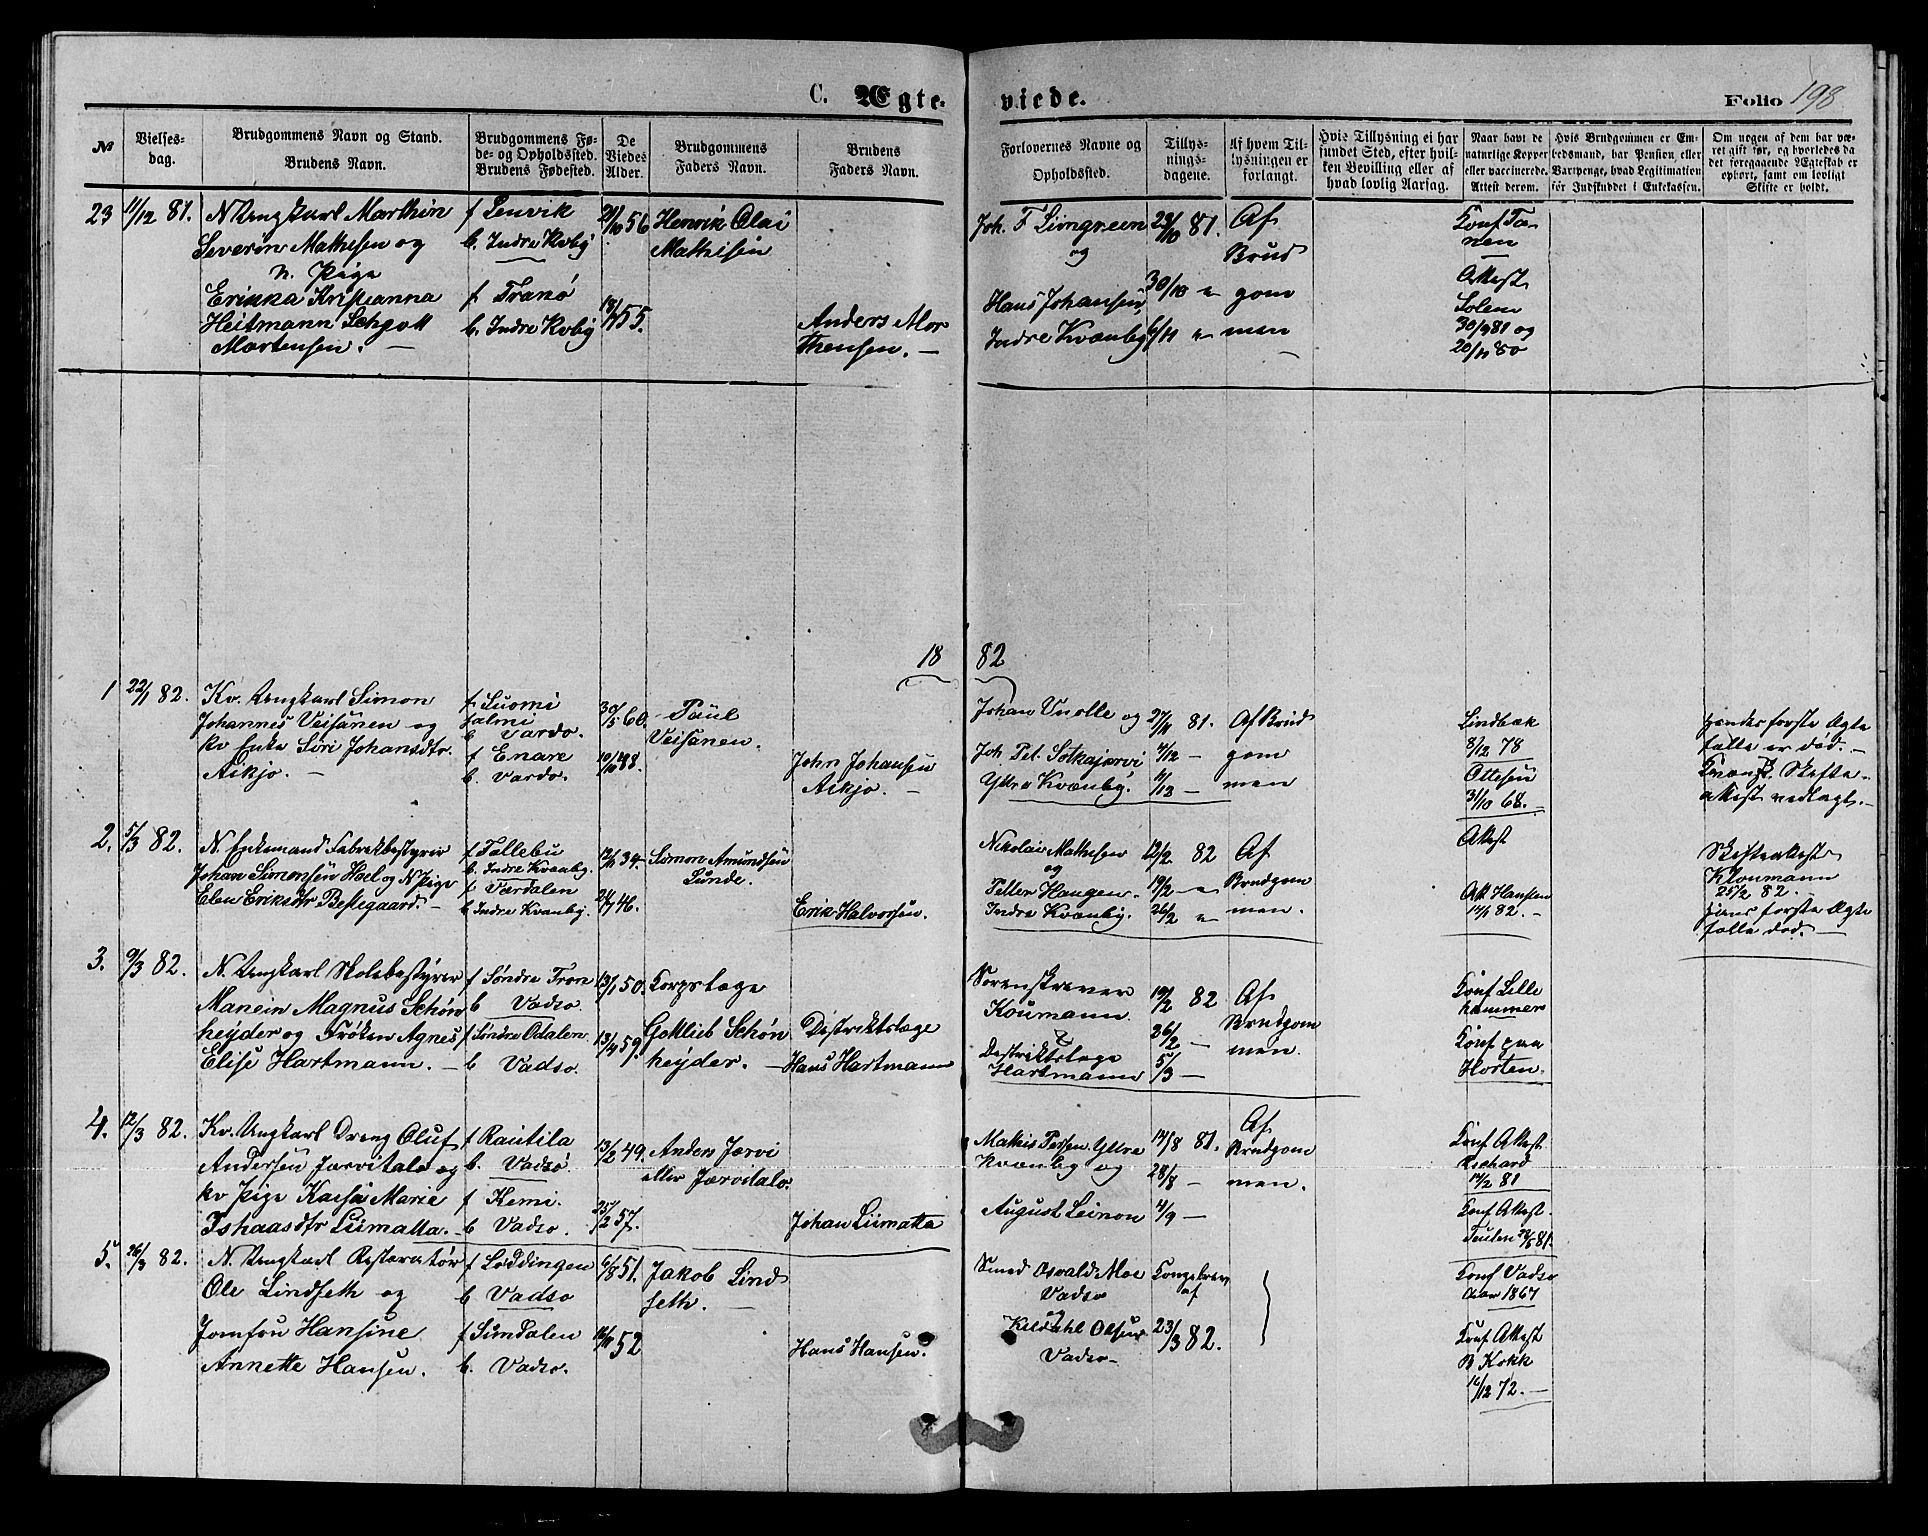 C. Ægte-
viede.
Folio 198
№
Vielses-
dag.
Brudgommens Navn og Stand.
Brudens Navn.
Brudgommens Fø-
de- og Opholdssted.
Brudens Fødested.
De
Viedes
Alder.
Brudgommens
Faders Navn.
Brudens
Faders Navn.
Forlovernes Navne og
Opholdssted.
Tillys-
nings-
dagene.
Af hvem Til-
lysningen er
forlangt.
Hvis Tillysning ei har
fundet Sted, efter hvil-
ken Bevilling eller af
hvad lovlig Aarsag.
Naar havt de
naturlige Kopper
eller vaccinerede.
Attest derom.
Hvis Brudgommen er Em-
bedsmand, har Pension, eller
Vartpenge, hvad Legitimation
før Indskuddet i Enkekassen.
Om nogen af dem har væ-
ret gift før, og hvorledes da
det foregaaende Ægteskab er
ophørt, samt om lovligt
Skifte er holdt.
23
11/12 81.
N Ungkarl Marthin
Severin Mathisen og
N. Pige
Erikka Kristianna
Heitmann Schjøtt
Mortensen. —
f Lenvik
b. Indre Kvby
f Tranö
b. Indre Kvby
21/10 56
18/1 55.
Henrik Olai
Mathisen
Anders Mor
thensen. —
Joh. F Liingreen
og
Hans Johansen,
Indre Kvænby
23/10 81.
30/10 "
6/11 "
Af
Brud
gom
men
Konf Ta-
nen
Attest
Solem
30/9 81 og
20/11 80
18 82
1
22/1 82.
Kv. Ungkarl Simon
Johannes Veisänen og
kv Enke Siri Johansdtr.
Aikjo. —
f. Suomi
salmi
b Vardø.
f Enare
b. Vardø.
30/5 60.
10/10 48.
Paul
Veisänen.
John Johansen
Aikjo. —
Johan Vuolle og
Joh. Pet. Sotkajærvi
Yttre Kvænby.
27/11 81.
4/12 —
11/12 —
Af Brud
gom
men
Lindbæk
8/12 78
Ottesen
3/10 68. —
hendes første Ægte
fælle er død. —
Skifte-
attest vedlagt. —
2.
5/3 82.
N. Enkemand Fabrikbestyrer
Johan Simonsen Hoel og N Pige
Elen Eriksdtr Bessegaard. —
f Follebu
b. Indre Kvænby.
f Værdalen
b Indre Kvænby.
12/11 34.
24/7 46.
Simon Amundsen
Sunde.
Erik Halvorsen.
Nikolai Mathisen
og
Petter Haugen
Indre Kvænby.
12/2 82
19/2 "
26/2 "
Af
Brudgom
men.
Attest
Att Hansen
14/1 82. —
Skifteattest
Kloumann
25/2 82.
hans første Ægte
fælle død. —
3.
9/3 82.
N. Ungkarl Skolebestyrer
Manein Magnus Schøn
heyder og Frøken Agnes
Elise Hartmann. —
f Søndre Tron
b Vadsø
f Søndre Odalen.
b Vadsø
13/1 50.
13/4 59.
Korpslæge
Gotlieb Schøn
heyder. —
Distriktslæge
Hans Hartmann
Sorenskriver
Koumann
&
Distriktslæge
Hartmann
19/2 82
26/2 —
5/3 —
Af
Brudgom
men.
Konf Lille
hammer
Konf paa
Horten.
4.
12/3 82.
Kv. Ungkarl Dreng Oluf
Andersen Jærvitalo og
kv Pige Kaisa Marie
Ishaasdtr Liimatta. —
f Rautila
b. Vadsø.
f Kemi.
b Vadsø.
13/2 49.
25/2 57.
Anders Jærvi
eller Jærvitalo.
Johan Liimatta
Mathis Persen Yttre
Kvænby og
August Leinon
14/8 81.
28/8 —
4/9 —
Af
Brudgom
men.
Konf Attest
Richard
14/2 81
Konf Attest.
5.
26/3 82.
N. Ungkarl Restoratør
Ole Lindseth og
Jomfru Hansine
Annette Hansen.
f Løddingen
b Vadsø
f Sundalen
b. Vadsø.
6/8 51.
16/11 52
Jakob Lind
seth. —
Hans Hansen.
Smed Osvald Moe
Vadsø
og
Kildahl Olsen
Vadsø
Kongebrev
af
23/3 82.
Konf Vadsø
Aar 1867
Konf Attest
B Kokk
16/12 72. —